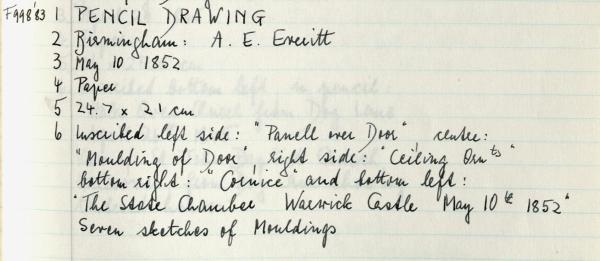 F998'83 1 PENCIL DRAWING
2 Birmingham: A. E. Everitt
3 May 10 1852
4 Paper
5 24.7 x 21 cm
6 Inscribed left side: "Panell over Door" center:
"Moulding of Door" right side: "Ceiling Ornts"
bottom right: "Cornice" and bottom left:
"The State Chamber Warwick Castle May 10th 1852"
Seven sketches of Mouldings